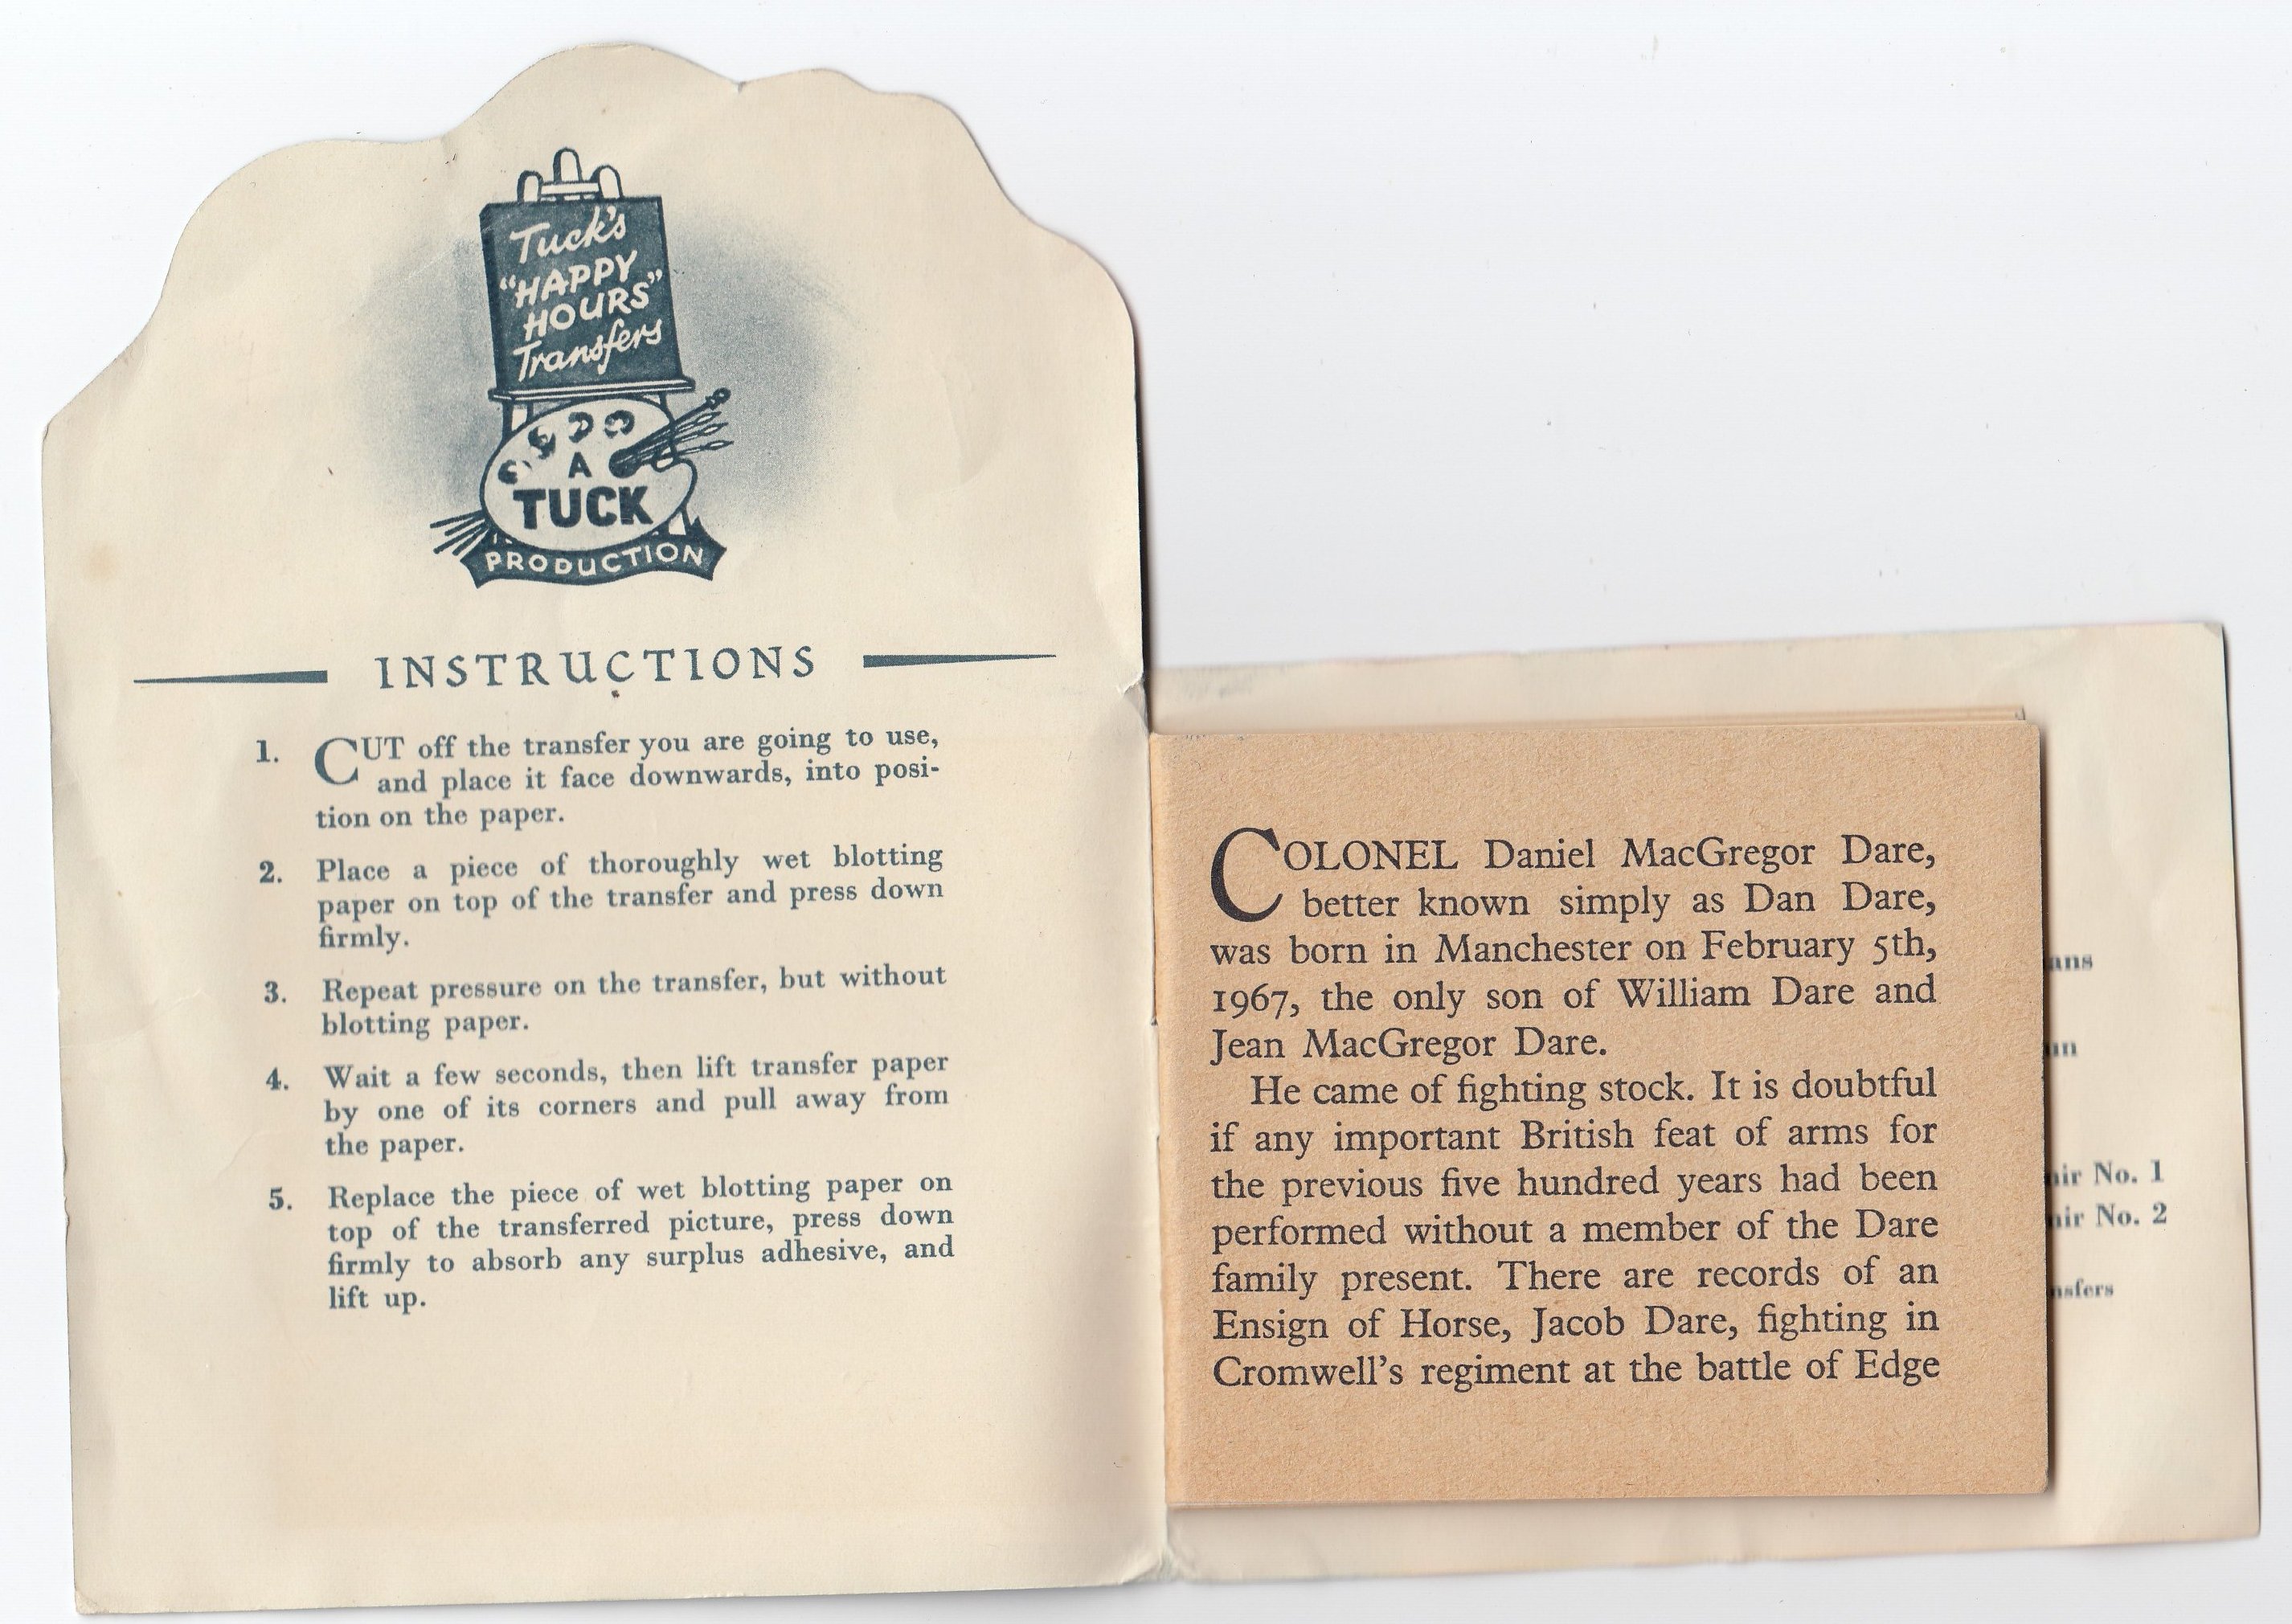 Tuck's
"HAPPY
HOURS"
Transfers
A
TUCK
PRODUCTION
INSTRUCTIONS
1. CUT off the transfer you are going to use,
and place it face downwards, into posi-
tion on the paper.
2. Place a piece of thoroughly wet blotting
paper on top of the transfer and press down
firmly.
3. Repeat pressure on the transfer, but without
blotting paper.
4. Wait a few seconds, then lift transfer paper
by one of its corners and pull away from
the paper.
5. Replace the piece of wet blotting paper on
top of the transferred picture, press down
firmly to absorb any surplus adhesive, and
lift up.
COLONEL Daniel MacGregor Dare,
better known simply as Dan Dare,
was born in Manchester on February 5th,
1967, the only son of William Dare and
Jean MacGregor Dare.
He came of fighting stock. It is doubtful
if any important British feat of arms for
the previous five hundred years had been
performed without a member of the Dare
family present. There are records of an
Ensign of Horse, Jacob Dare, fighting in
Cromwell's regiment at the battle of Edge
No. 1
No. 2